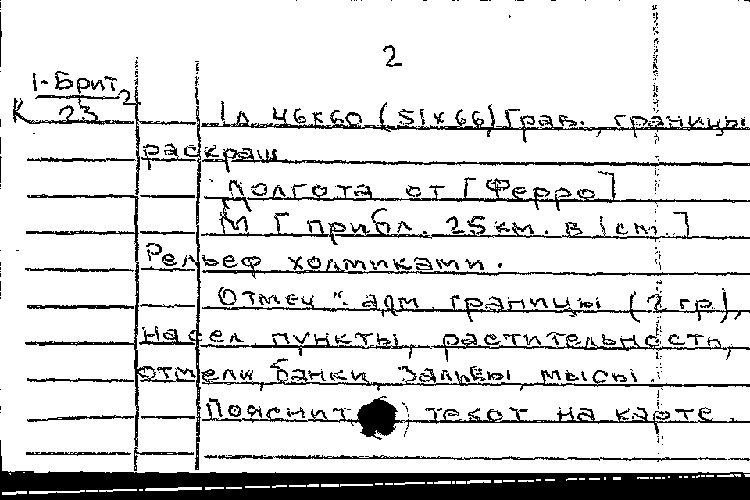 2
1-Брит 2
К 23
1 л 46х60 (51х66) Грав., границы
раскраш.
Долгота от [Ферро]
[М Г прибл. 25 км. в 1 см.]
Рельеф холмиками.
Отмеч: адм границы (2 гр),
насел пункты, растительность,
отмели, банки, заливы, мысы.
Пояснит текст на карте.